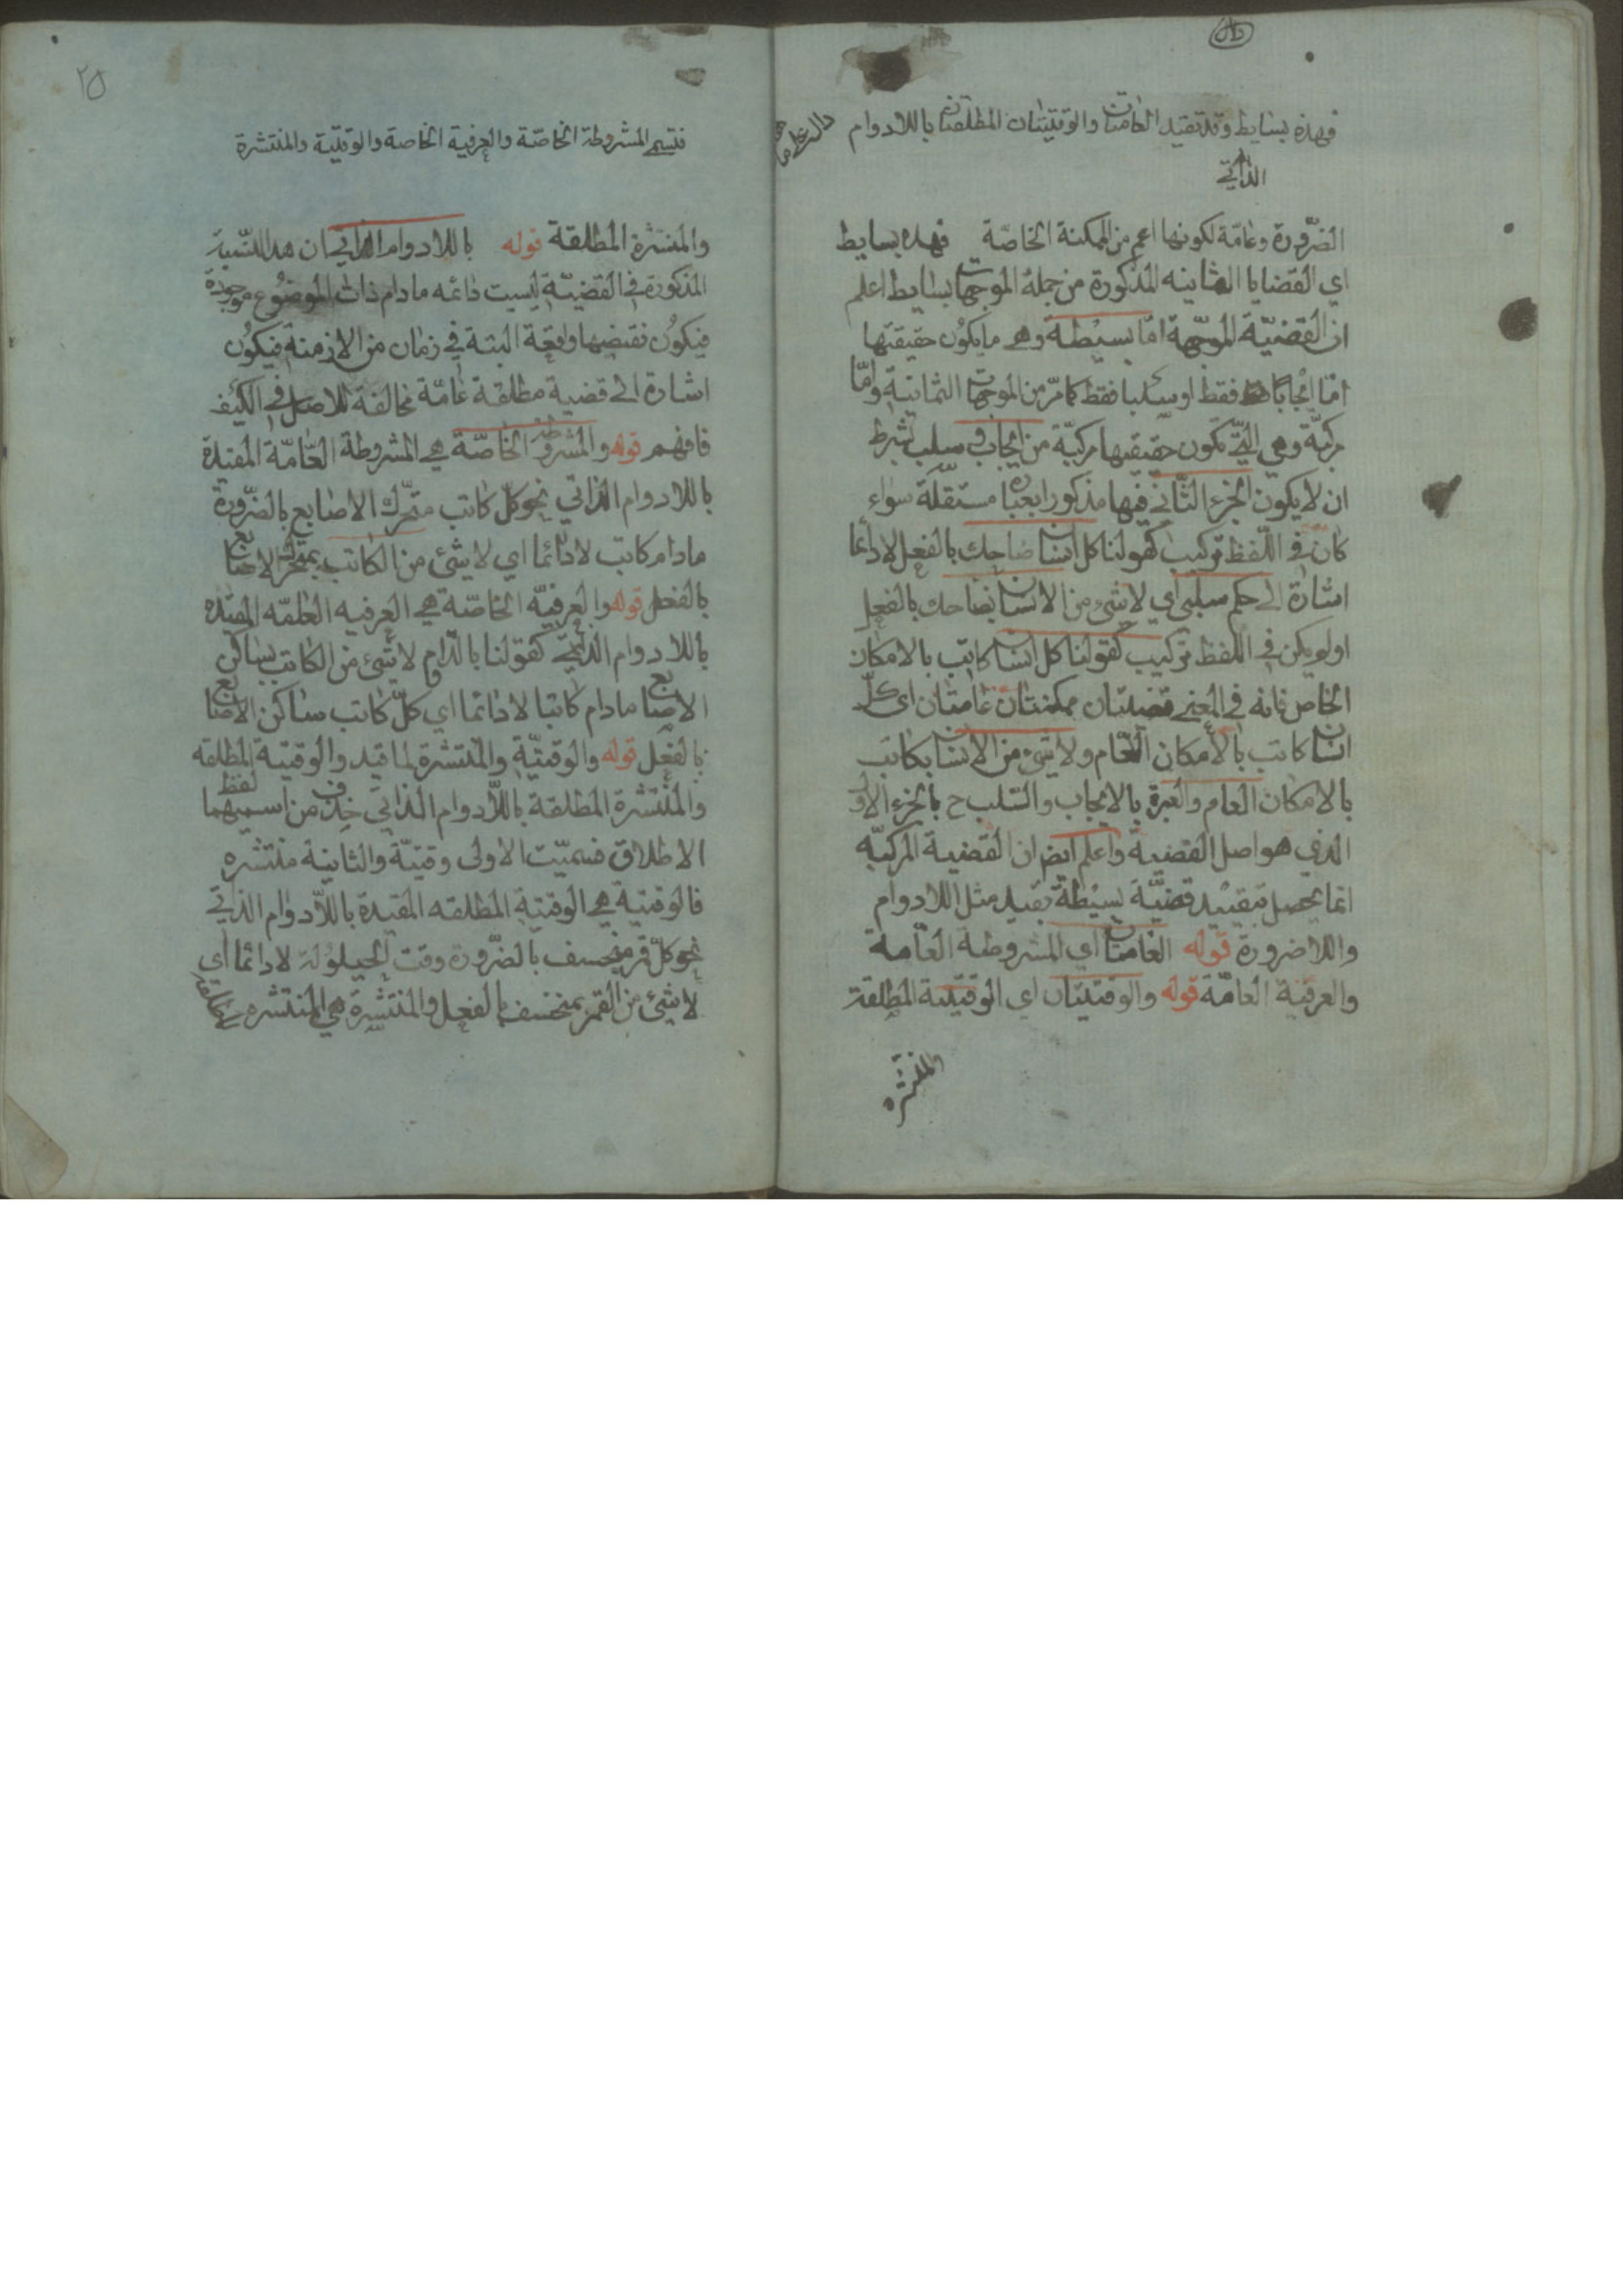 فهذه بسايط وقد تقيد العامتان والوقتيتان المطلقتان باللادوام
الذاتي
الضرورة وعامّة لكونها اعم من الممكنة الخاصّة فهذه بسايط
اي القضايا الثمانيه المذكورة من جملة الموجهات بسايط اعلم
ان القضيّة الموجّهة امّا بسيطة وهي ما يكون حقيقتها
امّا ايجابا فقط او سلبا فقط كما مرّ من الموجهات الثمانية وامّا
مركبّة وهي الّتي تكون حقيقتها مركبّة من ايجاب وسلب بشرط
ان لا يكون الجزء الثّاني فيها مذكورا بعبارة مستقلّة سواء
كان في اللّفظ تركيب كقولنا كل انسان ضاحك بالفعل لا دائما
اشارة الى حكم سلبي اي لا شيء من الانسان بضاحك بالفعل
او لم يكن في اللفظ تركيب كقولنا كل انسان كاتب بالامكان
الخاص فانه في المعنى قضيتان ممكنتان عامتان اى كلّ
انسان كاتب بالأمكان العّام ولا شيء من الانسان بكاتب
بالامكان العام والعبرة بالايجاب والسّلب ح بالجزء الاول
الذي هو اصل القضية واعلم ايضا ان القضية المركبّه
انما يحصل بتقييد قضيّة بسيطة بقيد مثل اللادوام
واللاضرورة قوله العامتان اي المشروطة العّامة
والعرفية العامّة قوله والوقتيتان اي الوقتيّة المطلقة
والمنتشره
٢٥
فتسمى المشروطة الخاصّة والعرفية الخاصة والوقتيّة والمنتشرة
والمنتشرة المطلقة قوله باللادوام الذاتي ان هذه النّسبة
المذكورة في القضيّة ليست دائمه ما دام ذات الموضوع موجودة
فيكون نقيضها واقعة البتة في زمان من الازمنة فيكون
اشارة الى قضية مطلقة عامّة مخالفة للاصل في الكيف
فافهم قوله والمشروطة الخاصّة هي المشروطة العّامّة المقيدة
باللادوام الذاتي نحو كلّ كاتب متحّرك الاصابع بالضّرورة
ما دام كاتب لا دائما اي لا شئ من الكاتب بمتحرك الاصابع
بالفعل قوله والعرفيّه الخاصّة هي العرفيه العامّه المقيّده
باللادوام الذاتي كقولنا بالدّوام لا شئ من الكاتب بساكن
الاصابع ما دام كاتبا لا دائما اي كلّ كاتب ساكن الاصابع
بالفعل قوله والوقتيّة والمنتشرة لما قيد والوقتية المطلقه
والمنتشرة المطلقة باللّادوام الذاتي حذف من اسميهما لفظ
الاطلاق فسميّت الاولى وقتيّة والثانية منتشره
فالوقتية هي الوقتية المطلقه المقيدة باللّادوام الذاتي
نحو كلّ قمر منخسف بالضّرورة وقت الحيلولة لا دائما اي
لا شئ من القمر بمنخسف بالفعل والمنتشرة هي المنتشره